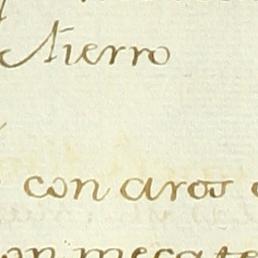 tierro
con aros
con mecate